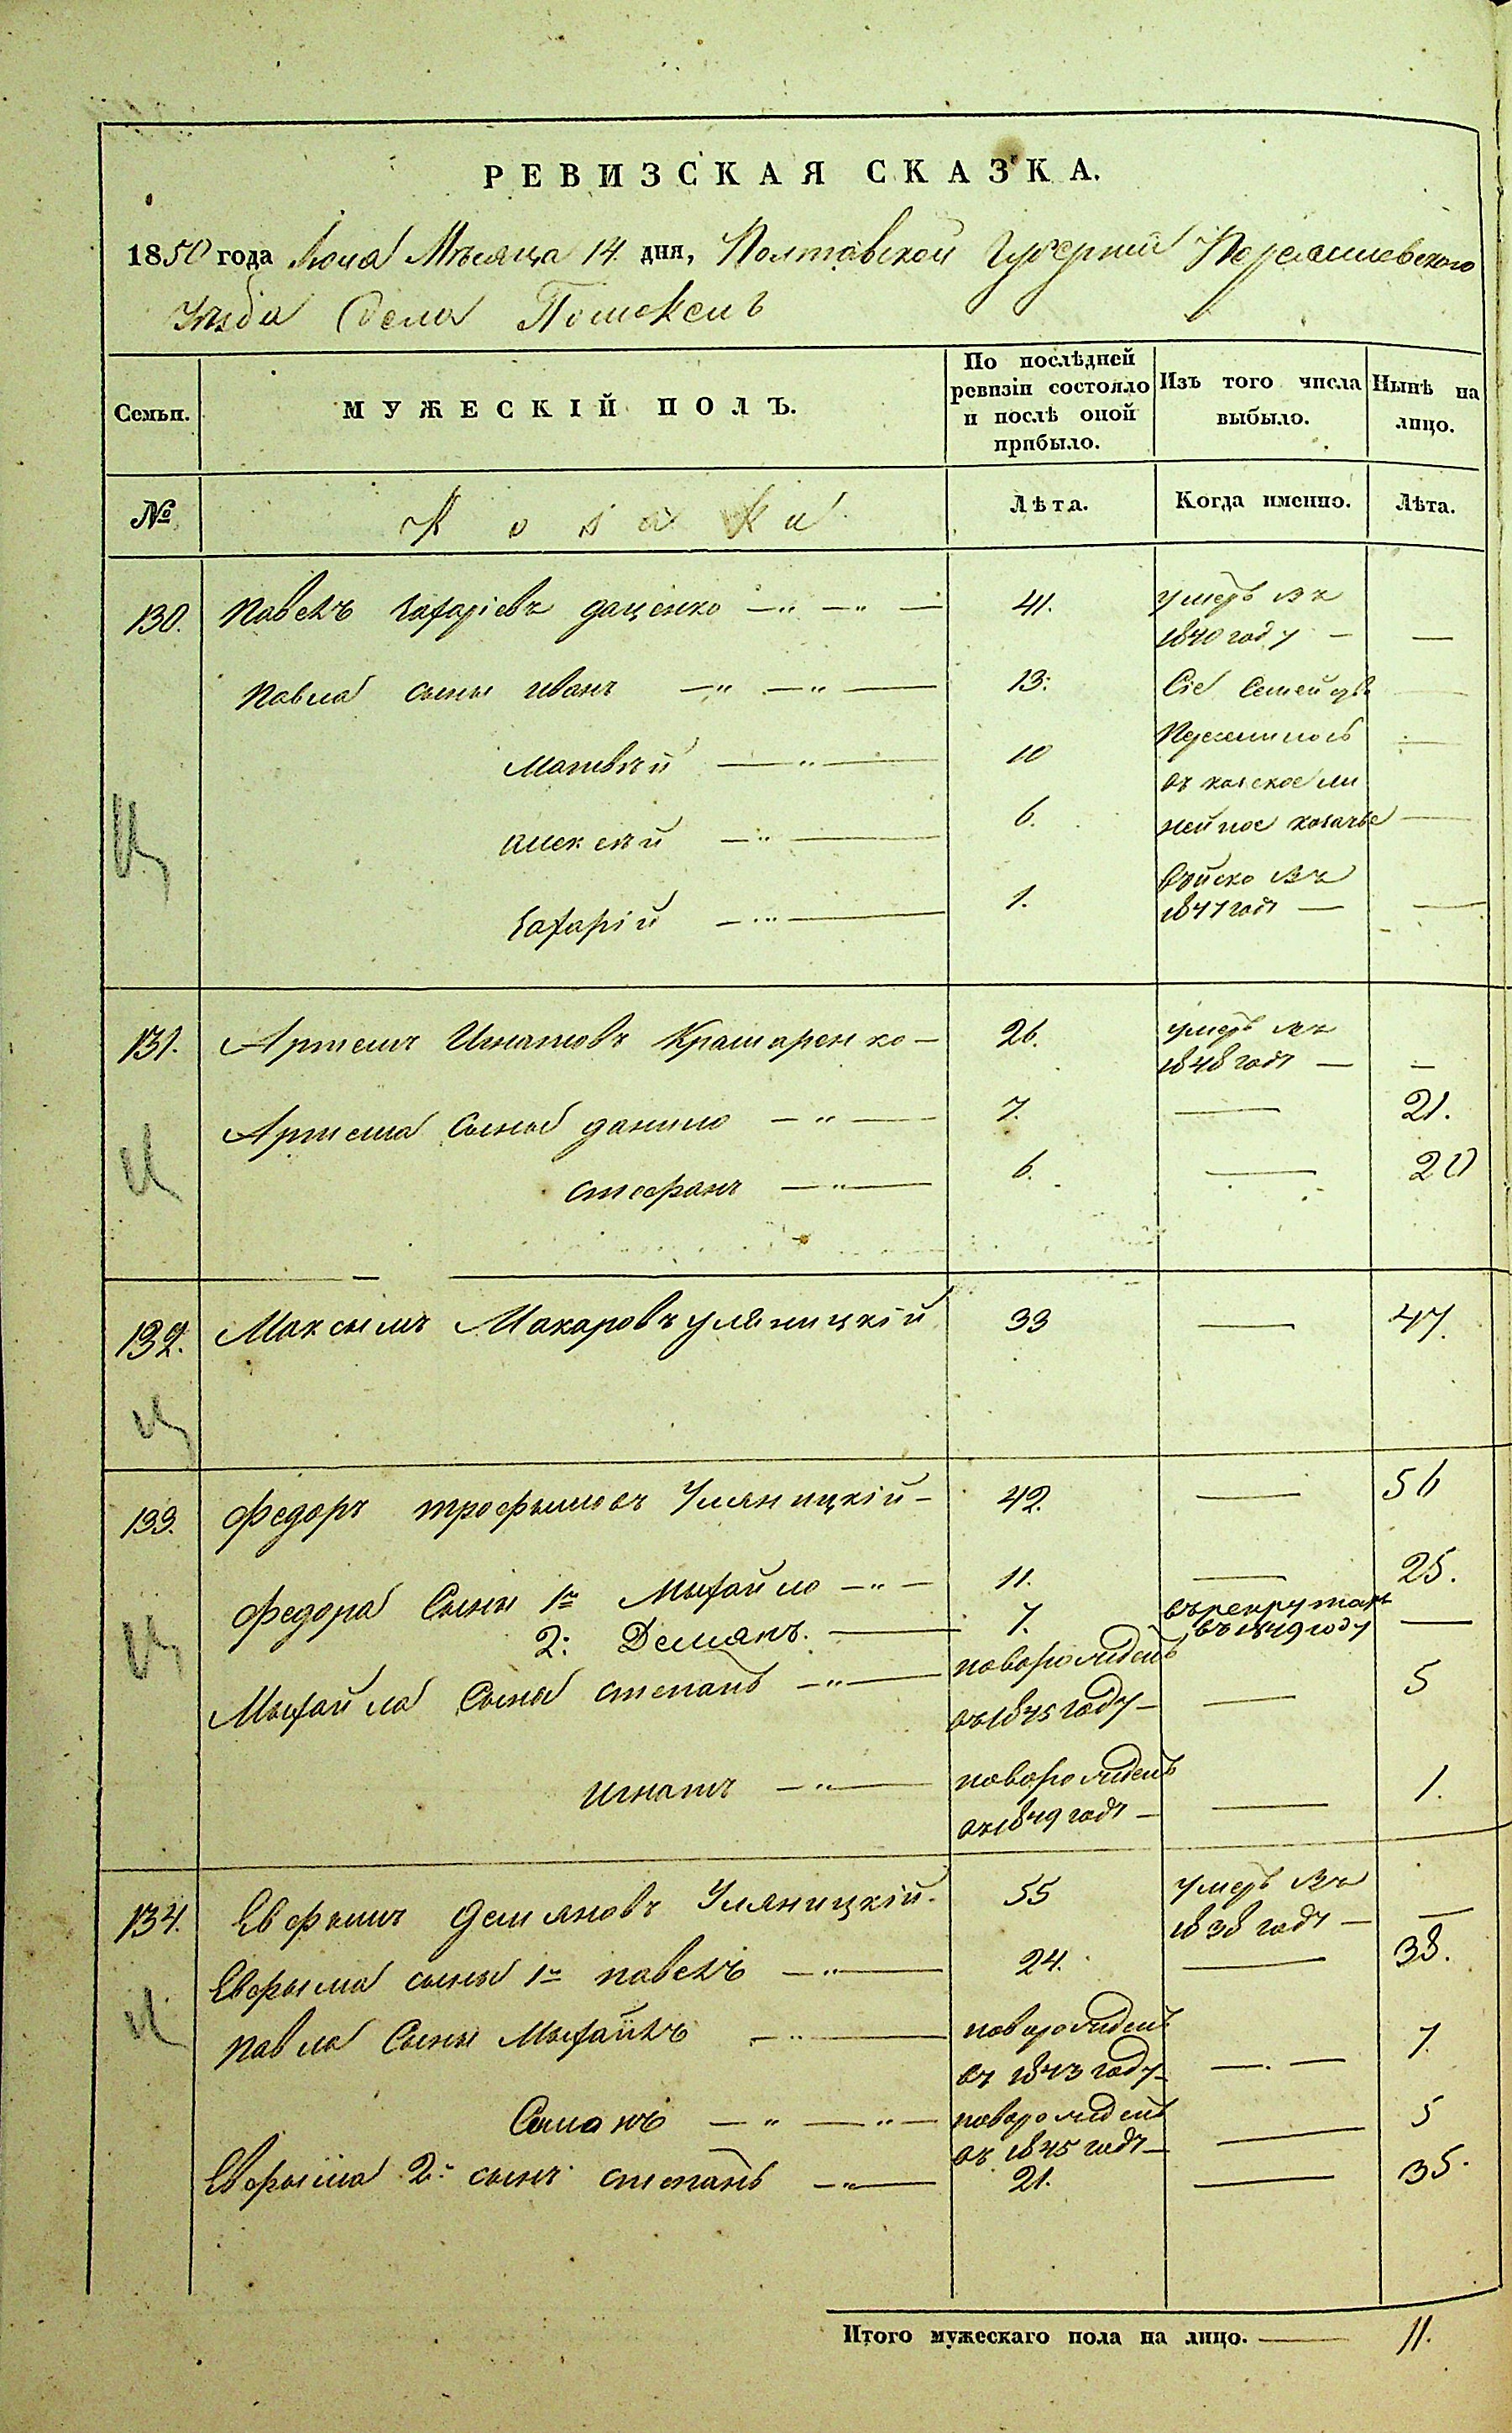 РЕВИЗСКАЯ СКАЗКА.
1850 года Мѣсяца 14 дня, Полтавской Губерніи
Уѣзда Села
Семьи. МУЖЕСКІЙ ПОЛЪ. По послѣдней ревизіи состояло и послѣ оной прибыло. Изъ того числа выбыло. Нынѣ на лицо.
№ Козаки Лѣта. Когда именно. Лѣта.
130. Павелъ Захаріевъ даценко 41. умеръ въ
1840 году
Павла сыны иванъ 13. Сіе Семейство
Матвѣй 10
въ ли
алексѣй 6. нейное козачье
войско въ
Захарій 1. 1847 годѣ
131. Артемъ Игнатовъ Крамаренко 26. умеръ въ
1848 годѣ
Артема Сыны данило 7. 21.
стефанъ 6. 20
132. Максымъ Макаровъ уляницкій 33 47.
133. Федоръ трофымовъ Уляницкій 42. 56
Федора Сыны 1й Мыхайло 11. 25.
2: Демянъ. 7. въ рекрутахъ
въ 1849 году
Мыхайла Сыны степанъ новорожденъ 5
въ 1845 году
игнатъ новорожденъ 1.
въ 1849 годѣ
134. Евфымъ Демяновъ Уляницкій. 55 умеръ въ
1838 годѣ
Евфыма сыны 1й павелъ 24. 38.
павла Сыны Мыхайлъ новорожденъ 7.
въ 1843 году
новорожденъ 5
въ 1845 годѣ
Евфыма 2й сынъ степанъ 21. 35.
Итого мужескаго пола на лицо. 11.